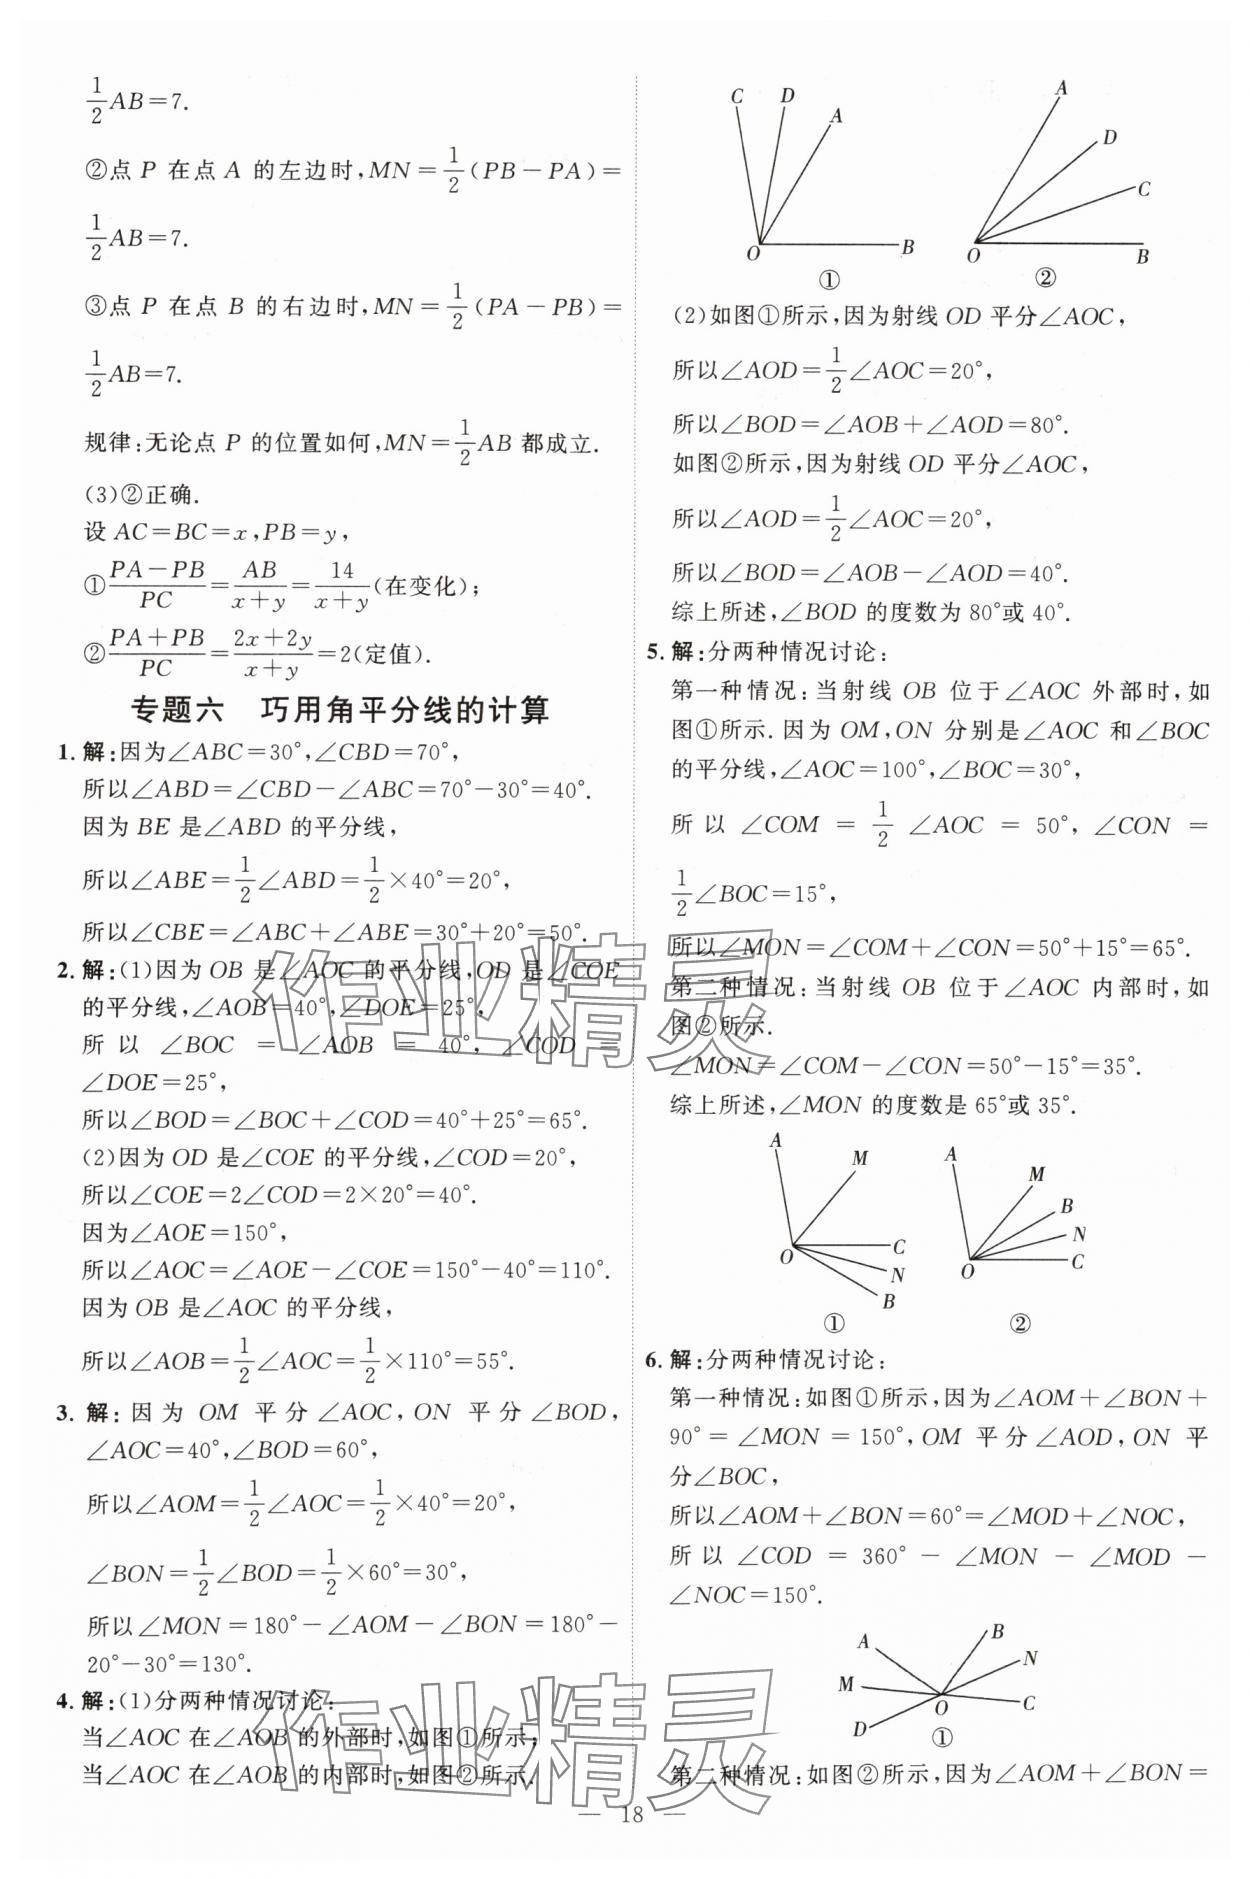 $\frac{1}{2}AB=7.$
②点 P 在点 A 的左边时,$MN=\frac{1}{2}(PB-PA)=$
$\frac{1}{2}AB=7.$
③点 P 在点 B 的右边时,$MN=\frac{1}{2}(PA-PB)=$
$\frac{1}{2}AB=7.$
规律:无论点 P 的位置如何,$MN=\frac{1}{2}AB$ 都成立.
(3)②正确.
设 AC=BC=x,PB=y,
①$\frac{PA-PB}{PC}=\frac{AB}{x+y}=\frac{14}{x+y}$(在变化);
②$\frac{PA+PB}{PC}=\frac{2x+2y}{x+y}=2$(定值).
专题六 巧用角平分线的计算
1. 解:因为∠ABC=30°,∠CBD=70°,
所以∠ABD=∠CBD-∠ABC=70°-30°=40°.
因为 BE 是∠ABD 的平分线,
所以∠ABE=$\frac{1}{2}$∠ABD=$\frac{1}{2}$×40°=20°,
所以∠CBE=∠ABC+∠ABE=30°+20°=50°.
2. 解:(1)因为 OB 是∠AOC 的平分线,OD 是∠COE
的平分线,∠AOB=40°,∠DOE=25°,
所以 ∠BOC = ∠AOB = 40°, ∠COD =
∠DOE=25°,
所以∠BOD=∠BOC+∠COD=40°+25°=65°.
(2)因为 OD 是∠COE 的平分线,∠COD=20°,
所以∠COE=2∠COD=2×20°=40°.
因为∠AOE=150°,
所以∠AOC=∠AOE-∠COE=150°-40°=110°.
因为 OB 是∠AOC 的平分线,
所以∠AOB=$\frac{1}{2}$∠AOC=$\frac{1}{2}$×110°=55°.
3. 解:因为 OM 平分∠AOC,ON 平分∠BOD,
∠AOC=40°,∠BOD=60°,
所以∠AOM=$\frac{1}{2}$∠AOC=$\frac{1}{2}$×40°=20°,
∠BON=$\frac{1}{2}$∠BOD=$\frac{1}{2}$×60°=30°,
所以∠MON=180°-∠AOM-∠BON=180°-
20°-30°=130°.
4. 解:(1)分两种情况讨论:
当∠AOC 在∠AOB 的外部时,如图①所示;
当∠AOC 在∠AOB 的内部时,如图②所示.
C D A O B ①
A D C O B ②
(2)如图①所示,因为射线 OD 平分∠AOC,
所以∠AOD=$\frac{1}{2}$∠AOC=20°,
所以∠BOD=∠AOB+∠AOD=80°.
如图②所示,因为射线 OD 平分∠AOC,
所以∠AOD=$\frac{1}{2}$∠AOC=20°,
所以∠BOD=∠AOB-∠AOD=40°.
综上所述,∠BOD 的度数为 80°或 40°.
5. 解:分两种情况讨论:
第一种情况:当射线 OB 位于∠AOC 外部时,如
图①所示.因为 OM,ON 分别是∠AOC 和∠BOC
的平分线,∠AOC=100°,∠BOC=30°,
所以 ∠COM = $\frac{1}{2}$ ∠AOC = 50°, ∠CON =
$\frac{1}{2}$∠BOC=15°,
所以∠MON=∠COM+∠CON=50°+15°=65°.
第二种情况:当射线 OB 位于∠AOC 内部时,如
图②所示.
∠MON=∠COM-∠CON=50°-15°=35°.
综上所述,∠MON 的度数是 65°或 35°.
A M O C N B ①
A M B N O C ②
6. 解:分两种情况讨论:
第一种情况:如图①所示,因为∠AOM+∠BON+
90°=∠MON=150°,OM 平分∠AOD,ON 平
分∠BOC,
所以∠AOM+∠BON=60°=∠MOD+∠NOC,
所以 ∠COD = 360° - ∠MON - ∠MOD -
∠NOC=150°.
A B N M O C D ①
第二种情况:如图②所示,因为∠AOM+∠BON=
— 18 —
作业精灵
作业精灵